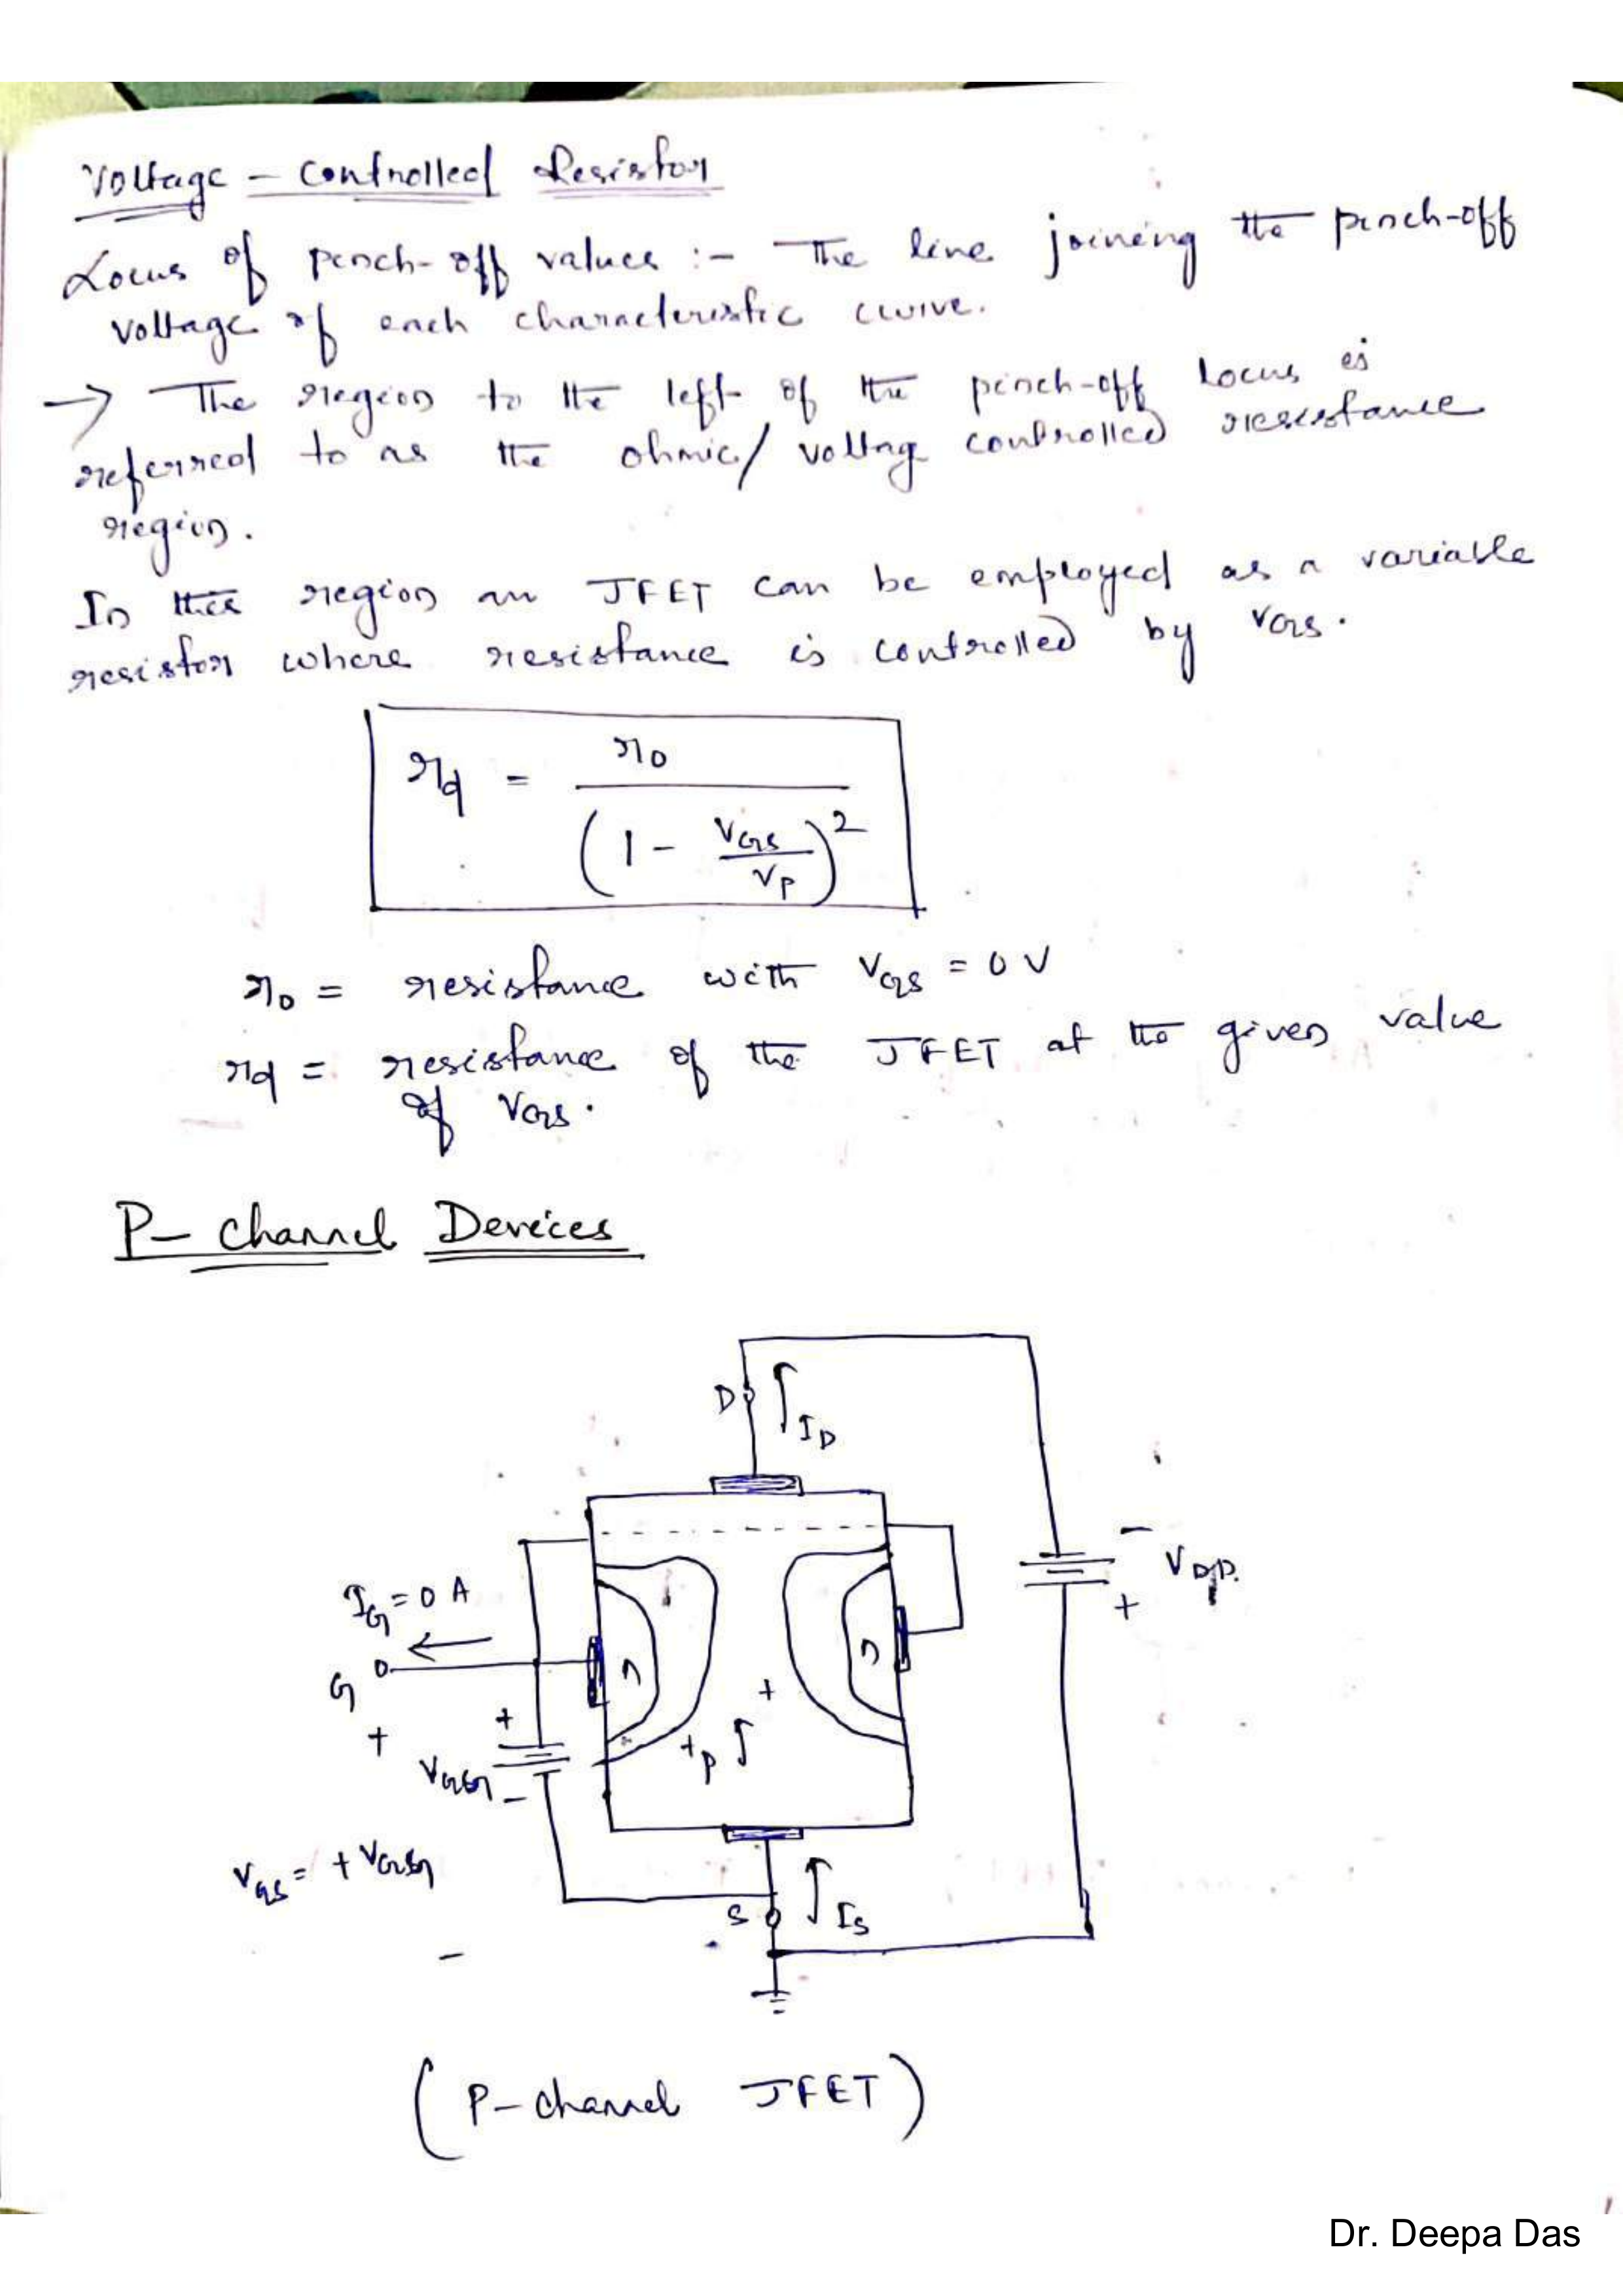 Voltage - Controlled Resistor
Locus of pinch-off values :- The line joining the pinch-off
voltage of each characteristic curve.
→ The region to the left of the pinch-off Locus is
referred to as the ohmic/ voltag controlled resistance
region.
In this region an JFET can be employed as a variable
resistor where resistance is controlled by VGS.
rd = r0 / (1 - VGS/VP)^2
r0 = resistance with VGS = 0 V
rd = resistance of the JFET at the given value
of VGS.
P- channel Devices
D
ID
IG = 0 A
G
+
+
VGG
-
n
n
+
+
P
-
VDD.
+
VGS = + VGG
-
S
IS
(P-channel JFET)
Dr. Deepa Das